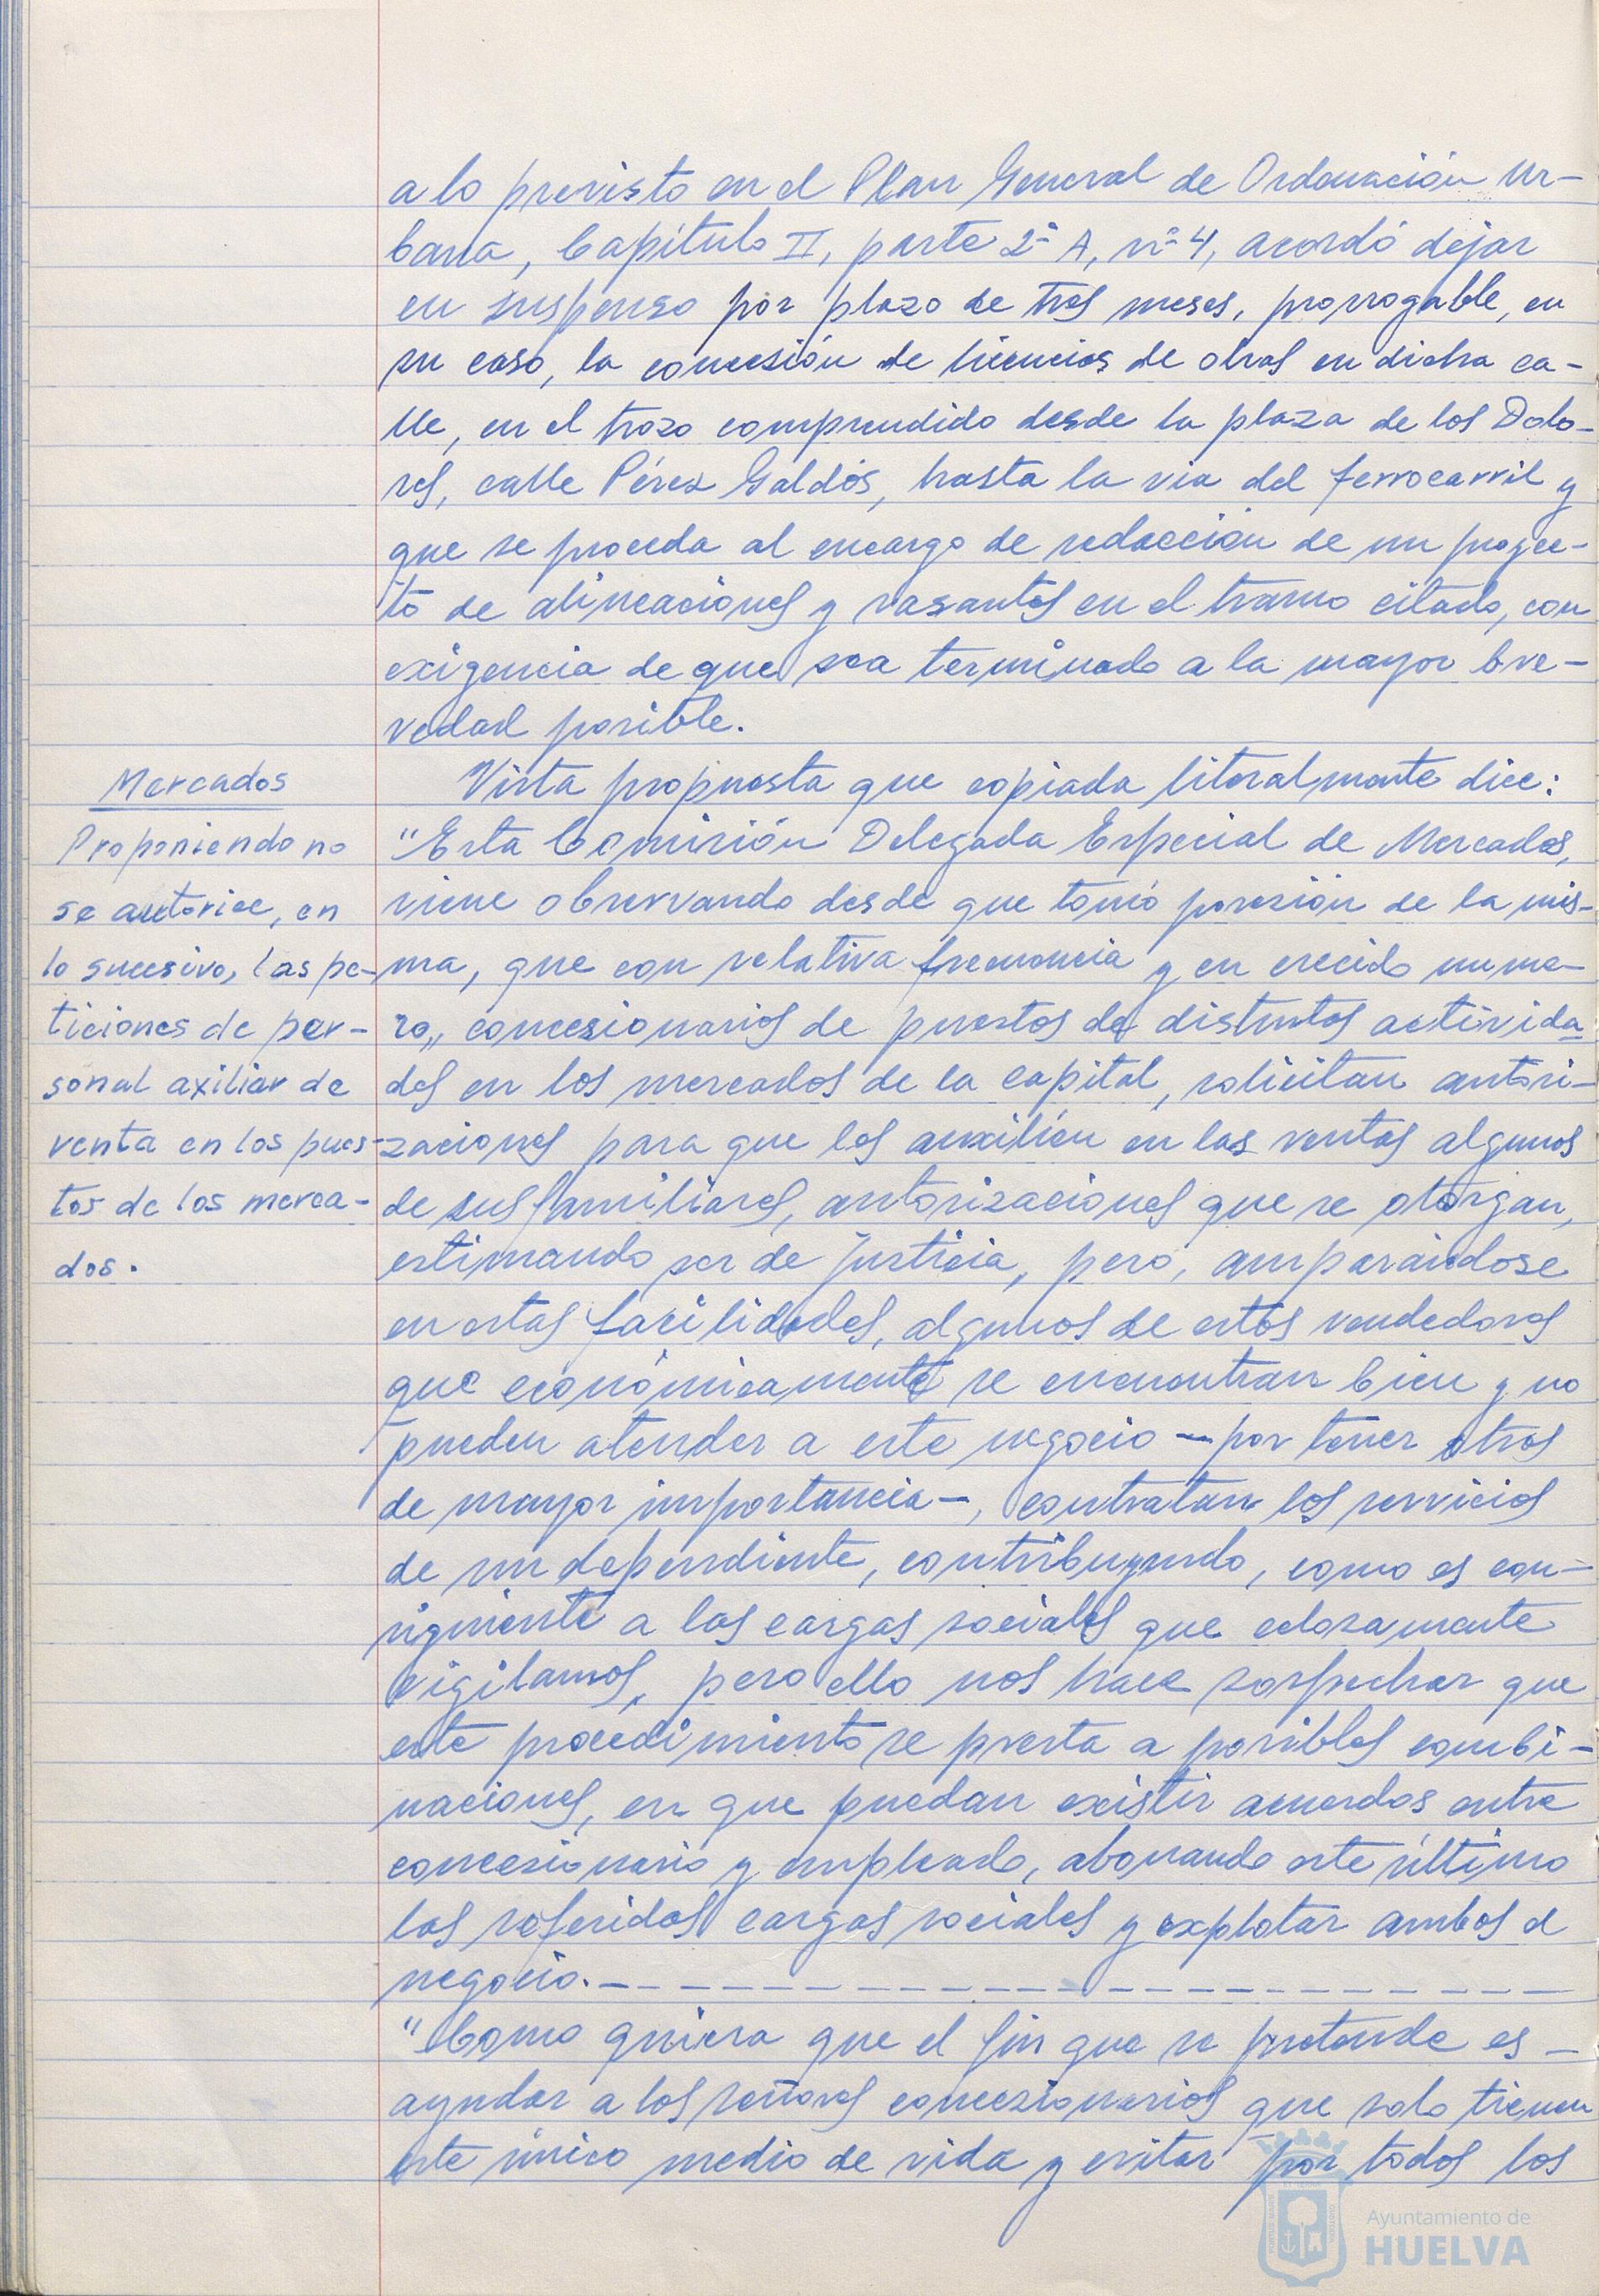 a lo previsto en el Plan General de Ordenación Ur-
bana, Capítulo II, parte 2ª A, nº 4, acordó dejar
en suspenso por plazo de tres meses, prorrogable, en
su caso, la concesión de licencias de obras en dicha ca-
lle, en el trozo comprendido desde la plaza de los Dolo-
res, calle Pérez Galdós, hasta la via del ferrocarril y
que se proceda al encargo de redacción de un proyec-
to de alineaciones y rasantes en el tramo citado, con
exigencia de que sea terminado a la mayor bre-
vedad posible.
Mercados
Proponiendo no
se autorice, en
lo sucesivo, las pe-
ticiones de per-
sonal axiliar de
venta en los pues-
tos de los merca-
dos.
Vista propuesta que copiada literalmente dice:
"Esta Comisión Delegada Especial de Mercados,
viene observando desde que tomó posesión de la mis-
ma, que con relativa frecuencia y en crecido nume-
ro,, concesionarios de puestos de distintas activida-
des en los mercados de la capital, solicitan autori-
zaciones para que les auxilien en las ventas algunos
de sus familiares, autorizaciones que se otorgan,
estimando ser de justicia, pero, amparándose
en estas facilidades, algunos de estos vendedores
que económicamente se encuentran bien y no
pueden atender a este negocio - por tener otros
de mayor importancia -, contratan los servicios
de un dependiente, contribuyendo, como es con-
siguiente a las cargas sociales que celosamente
vigilamos, pero ello nos hace sospechar que
este procedimiento se presta a posibles combi-
naciones, en que puedan existir acuerdos entre
concesionario y empleado, abonando este último
las referidas cargas sociales y explotar ambos el
negocio.- - - - - - - - - - - - - - - - - - -
"Como quiera que el fin que se pretende es -
ayudar a los señores concesionarios que solo tienen
este único medio de vida y evitar por todos los
Ayuntamiento de
HUELVA